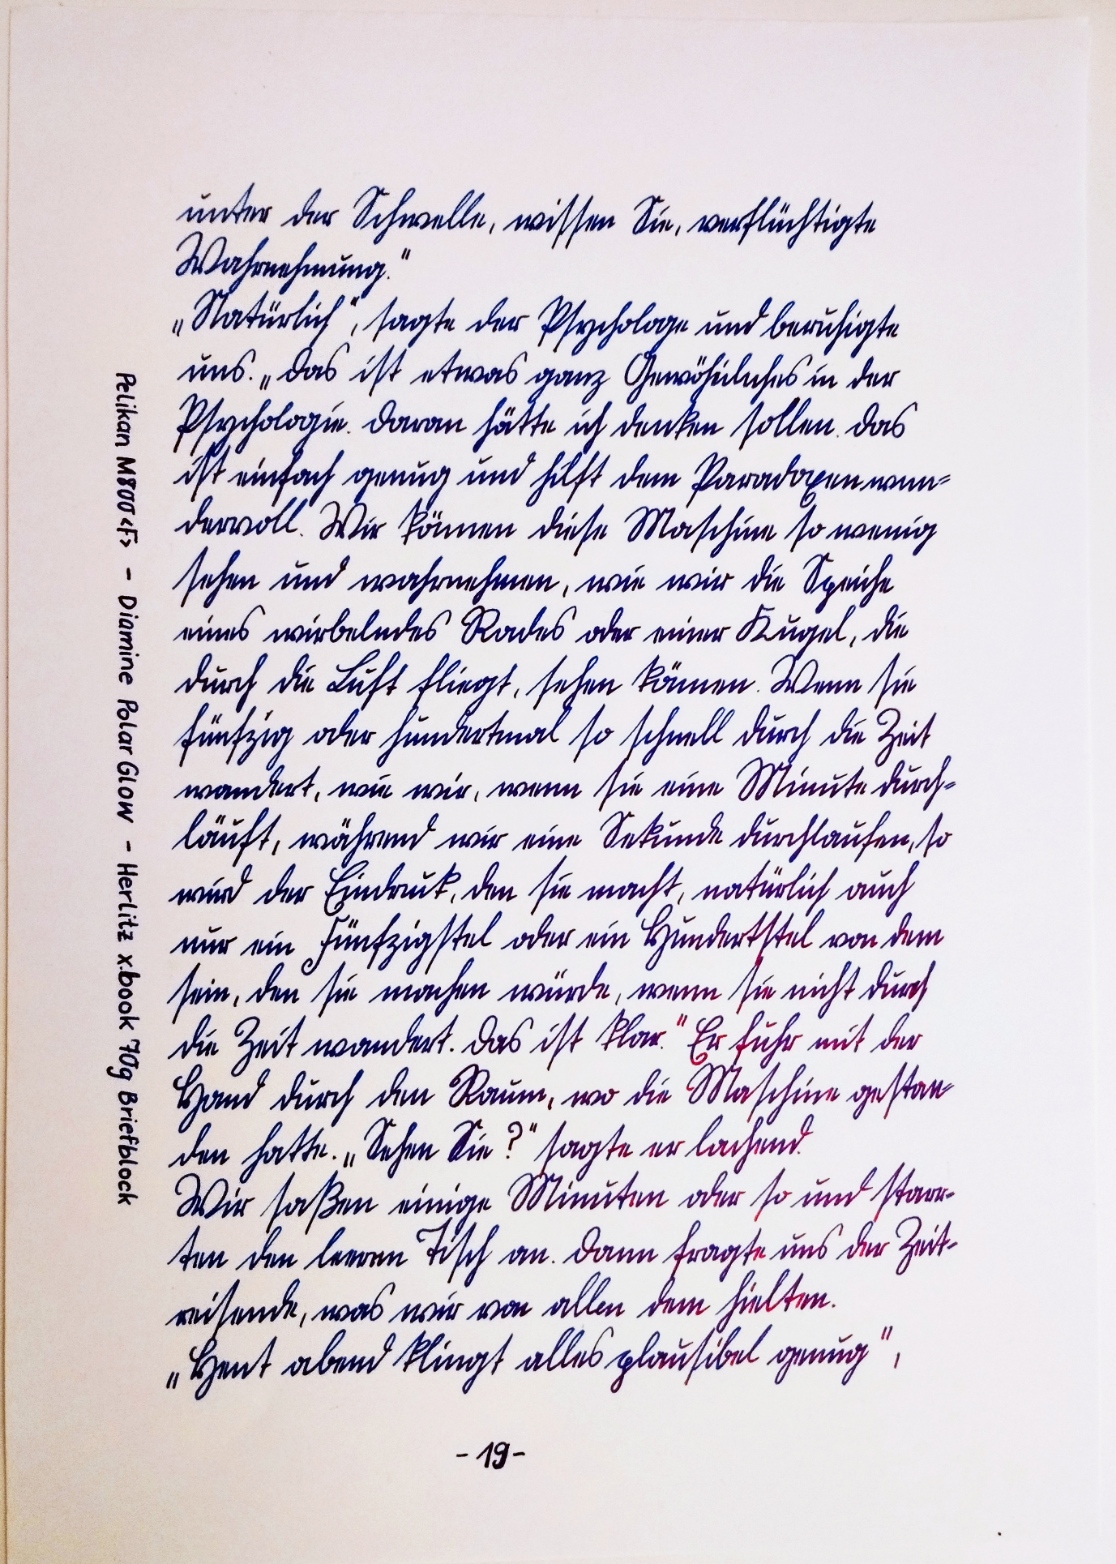 unter der Schwelle, wissen Sie, verflüchtigte
Wahrnehmung."
„Natürlich", sagte der Psychologe und beruhigte
uns. „Das ist etwas ganz Gewöhnliches in der
Psychologie. Daran hätte ich denken sollen. Das
ist einfach genug und hilft dem Paradoxen wun-
dervoll. Wir können diese Maschine so wenig
sehen und wahrnehmen, wie wir die Speiche
eines wirbelndes Rades oder einer Kugel, die
durch die Luft fliegt, sehen können. Wenn sie
fünfzig oder hundertmal so schnell durch die Zeit
wandert, wie wir, wenn sie eine Minute durch-
läuft, während wir eine Sekunde durchlaufen, so
wird der Eindruck, den sie macht, natürlich auch
nur ein Fünfzigstel oder ein Hundertstel von dem
sein, den sie machen würde, wenn sie nicht durch
die Zeit wandert. Das ist klar." Er fuhr mit der
Hand durch den Raum, wo die Maschine gestan-
den hatte. „Sehen Sie?" sagte er lachend.
Wir saßen einige Minuten oder so und starr-
ten den leeren Tisch an. Dann fragte uns der Zeit-
reisende, was wir von allen dem hielten.
„Heut abend klingt alles plausibel genug",
-19-
Pelikan M800 <F> - Diamine Polar Glow - Herlitz x.book 70g Briefblock